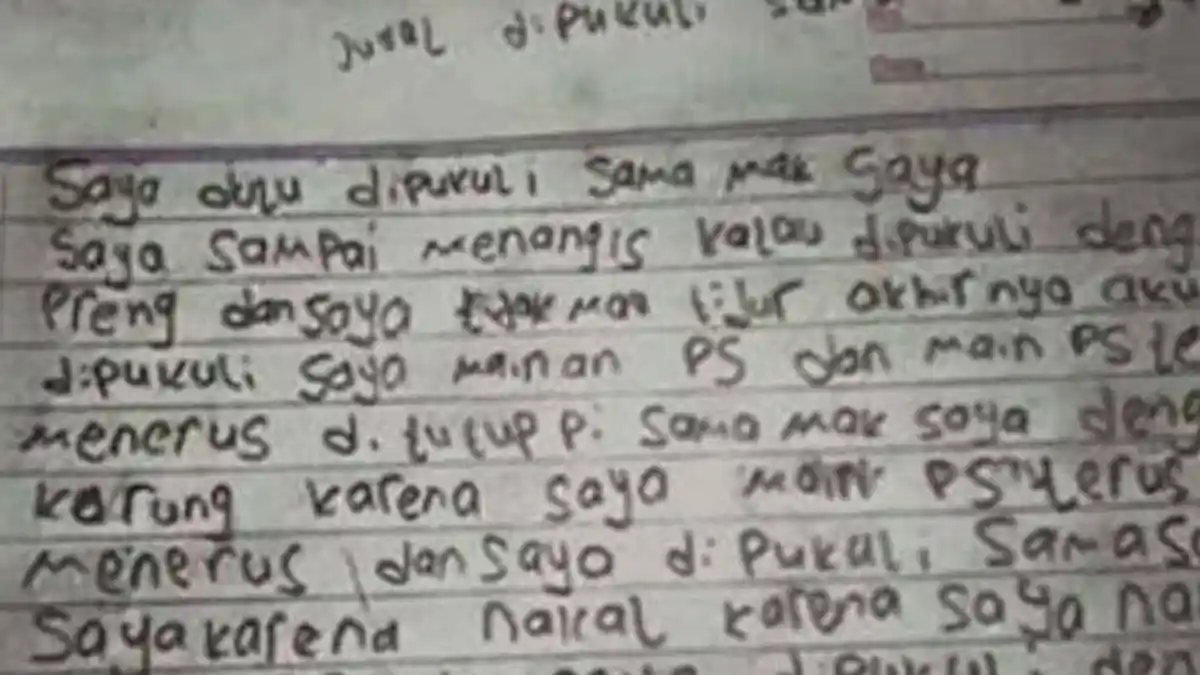 dipukuli
Saya dulu dipukuli sama mak saya
saya sampai menangis kalau dipukuli deng
Preng dan saya tidak mau tidur akhirnya aku
dipukuli saya mainan PS dan main PS te
menerus di tutup pi sama mak saya deng
karung karena saya main PS terus
menerus dan saya di pukuli samas
Saya karena nakal karena saya na
dipukuli den